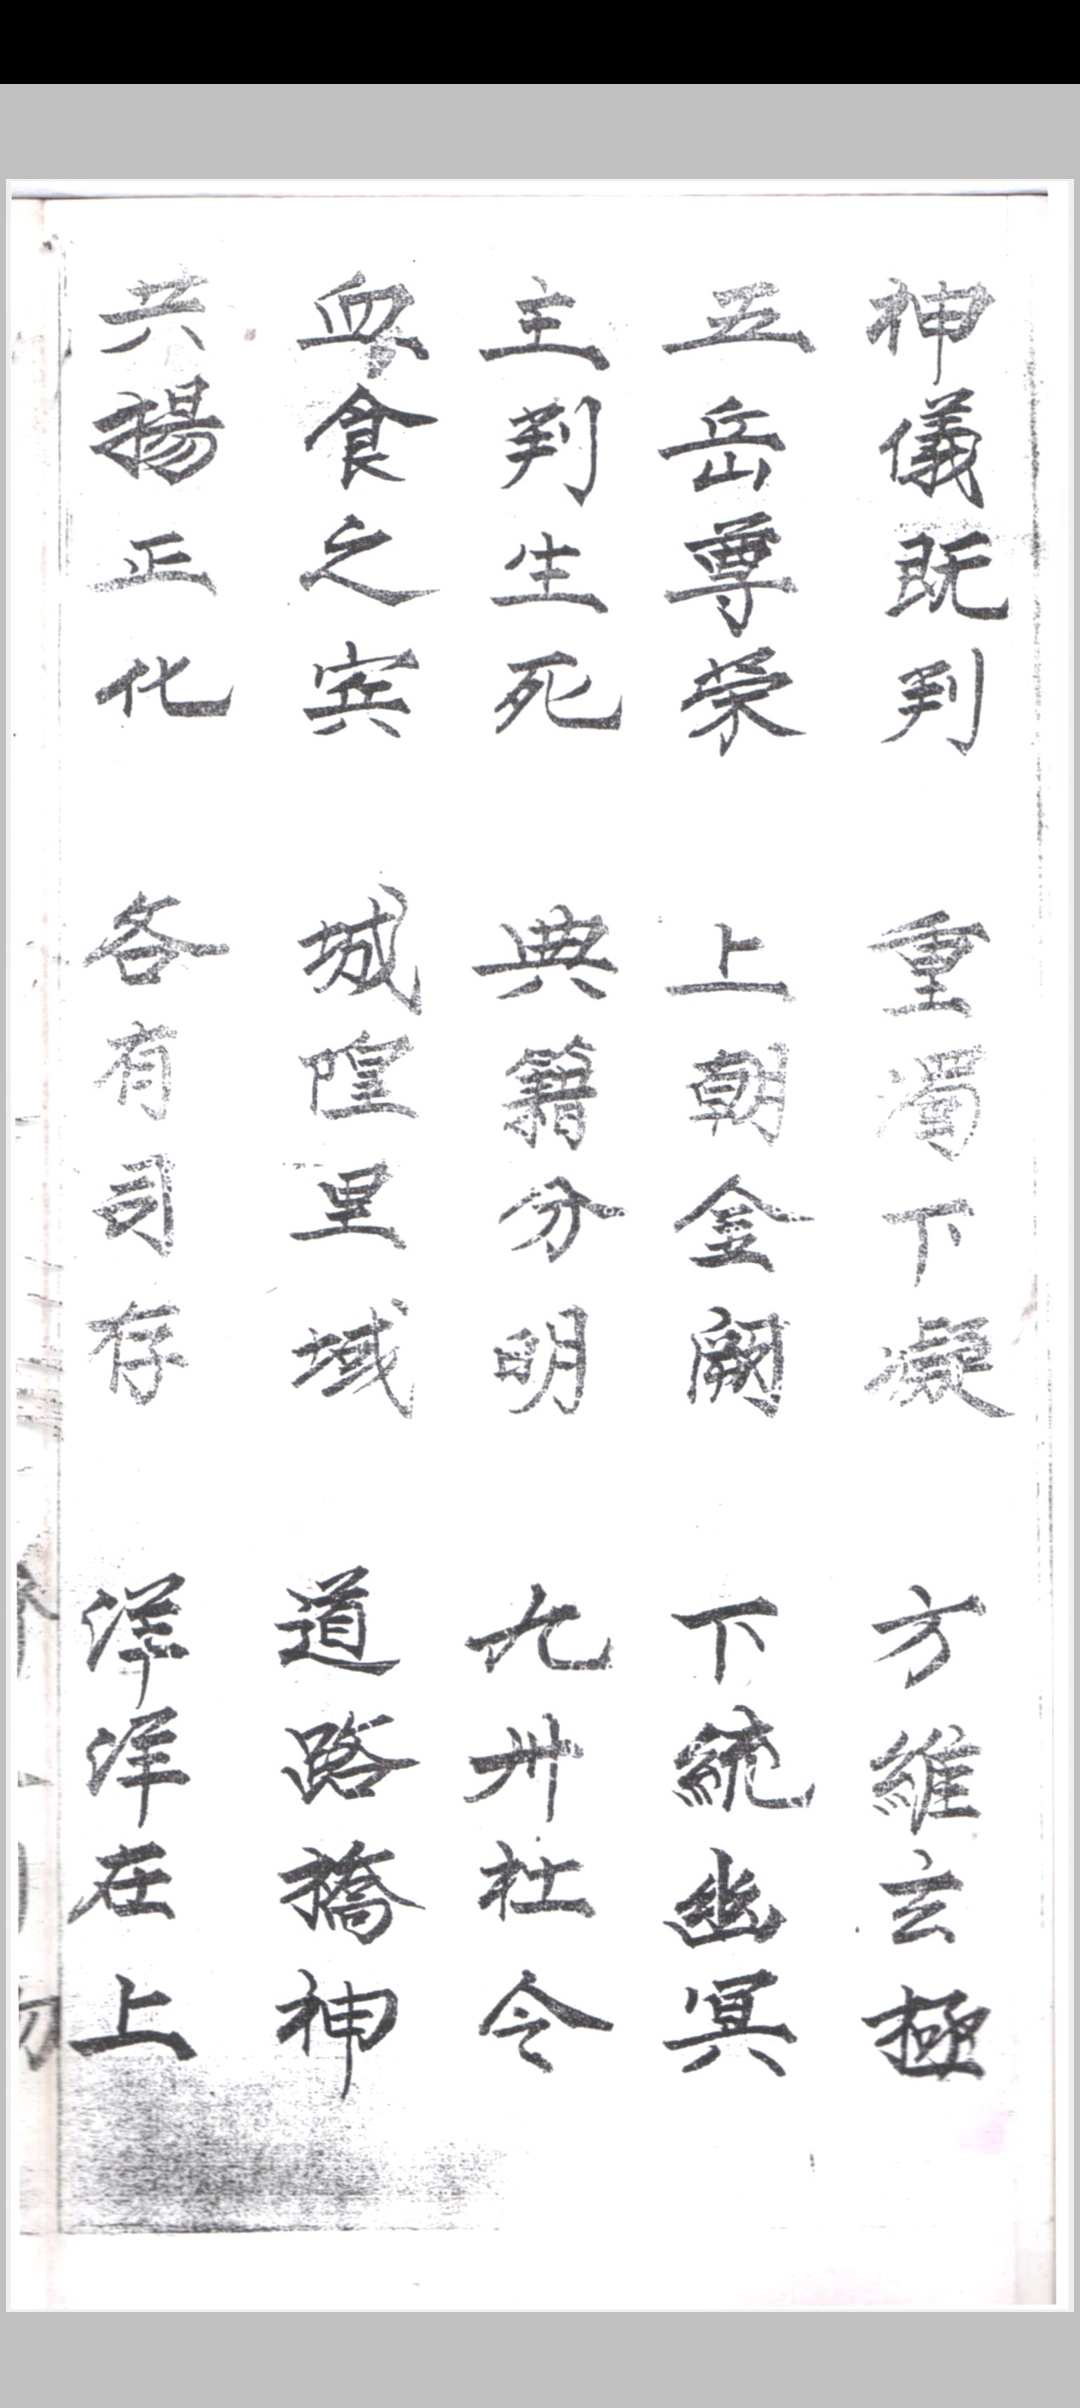 神儀既判 重濁下凝 方維玄極
五岳尊荣 上朝金闕 下統幽冥
主判生死 典籍分明 九州社令
血食之賓 城隍里域 道路橋神
共揚正化 各有司存 洋洋在上